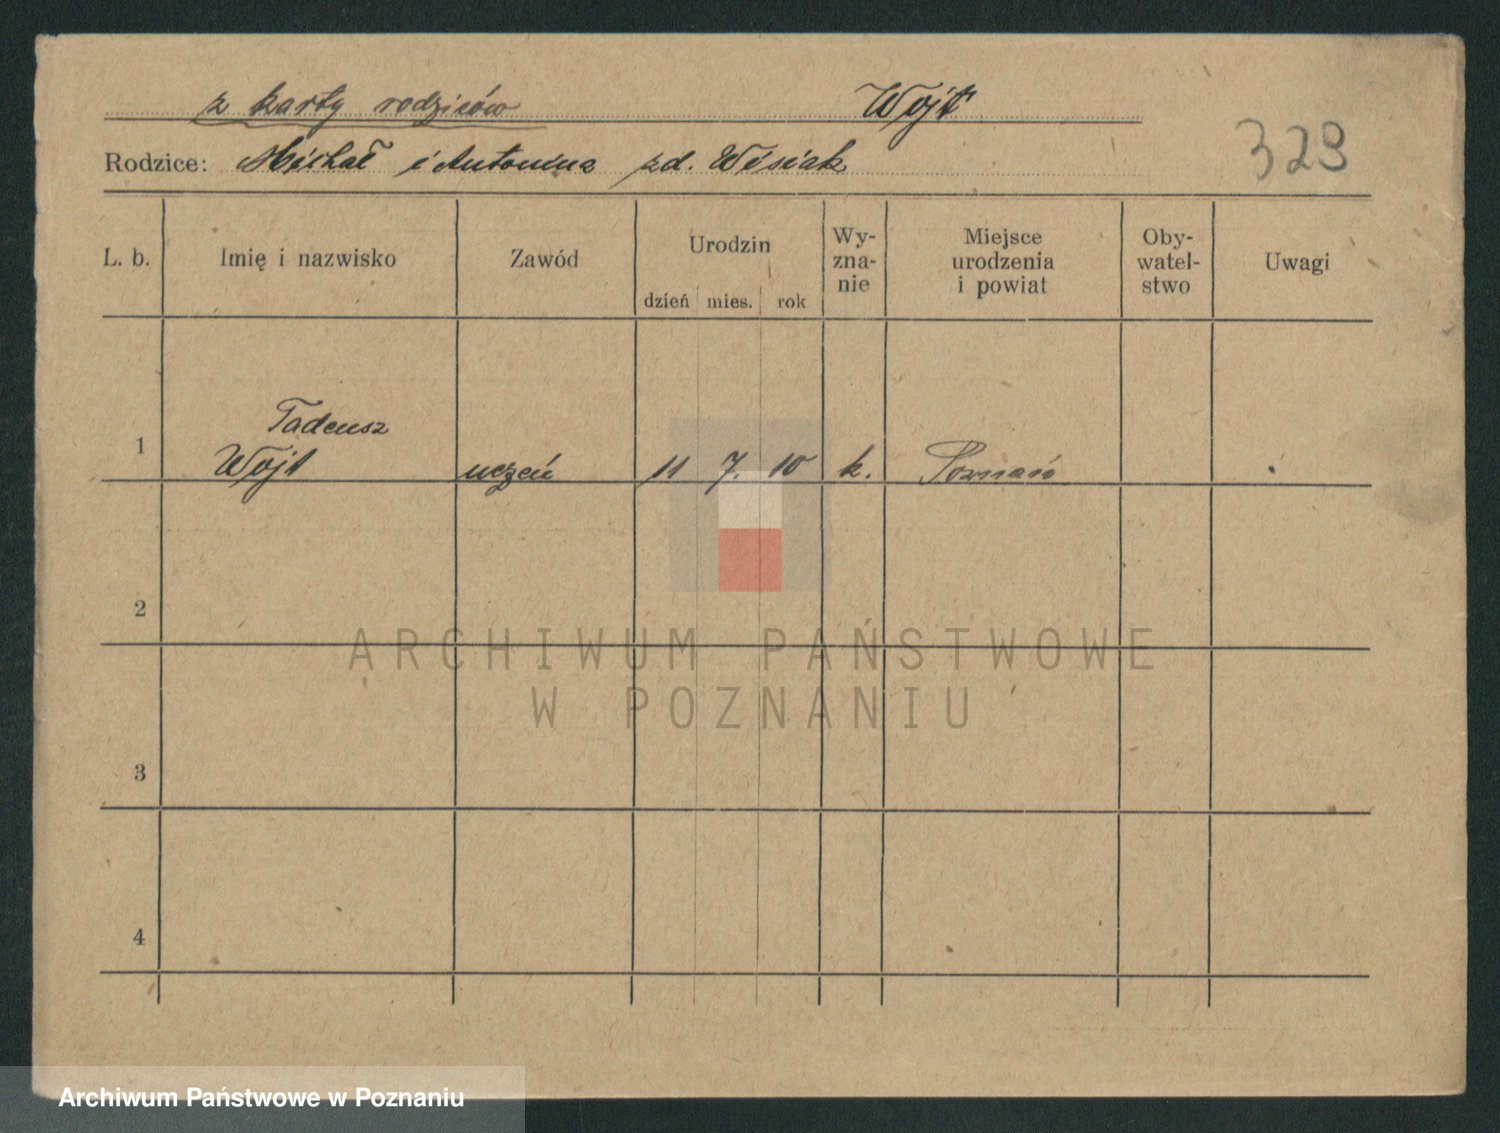 z karty rodziców Wojt
Rodzice: Michał i Antonina zd. Wisiak
323
L. b. Imię i nazwisko Zawód Urodzin dzień mies. rok Wy-zna-nie Miejsce urodzenia i powiat Oby-watel-stwo Uwagi
Tadeusz
1 Wojt uczeń 11 7. 10 k. Poznań
2
ARCHIWUM PAŃSTWOWE
W POZNANIU
3
4
Archiwum Państwowe w Poznaniu